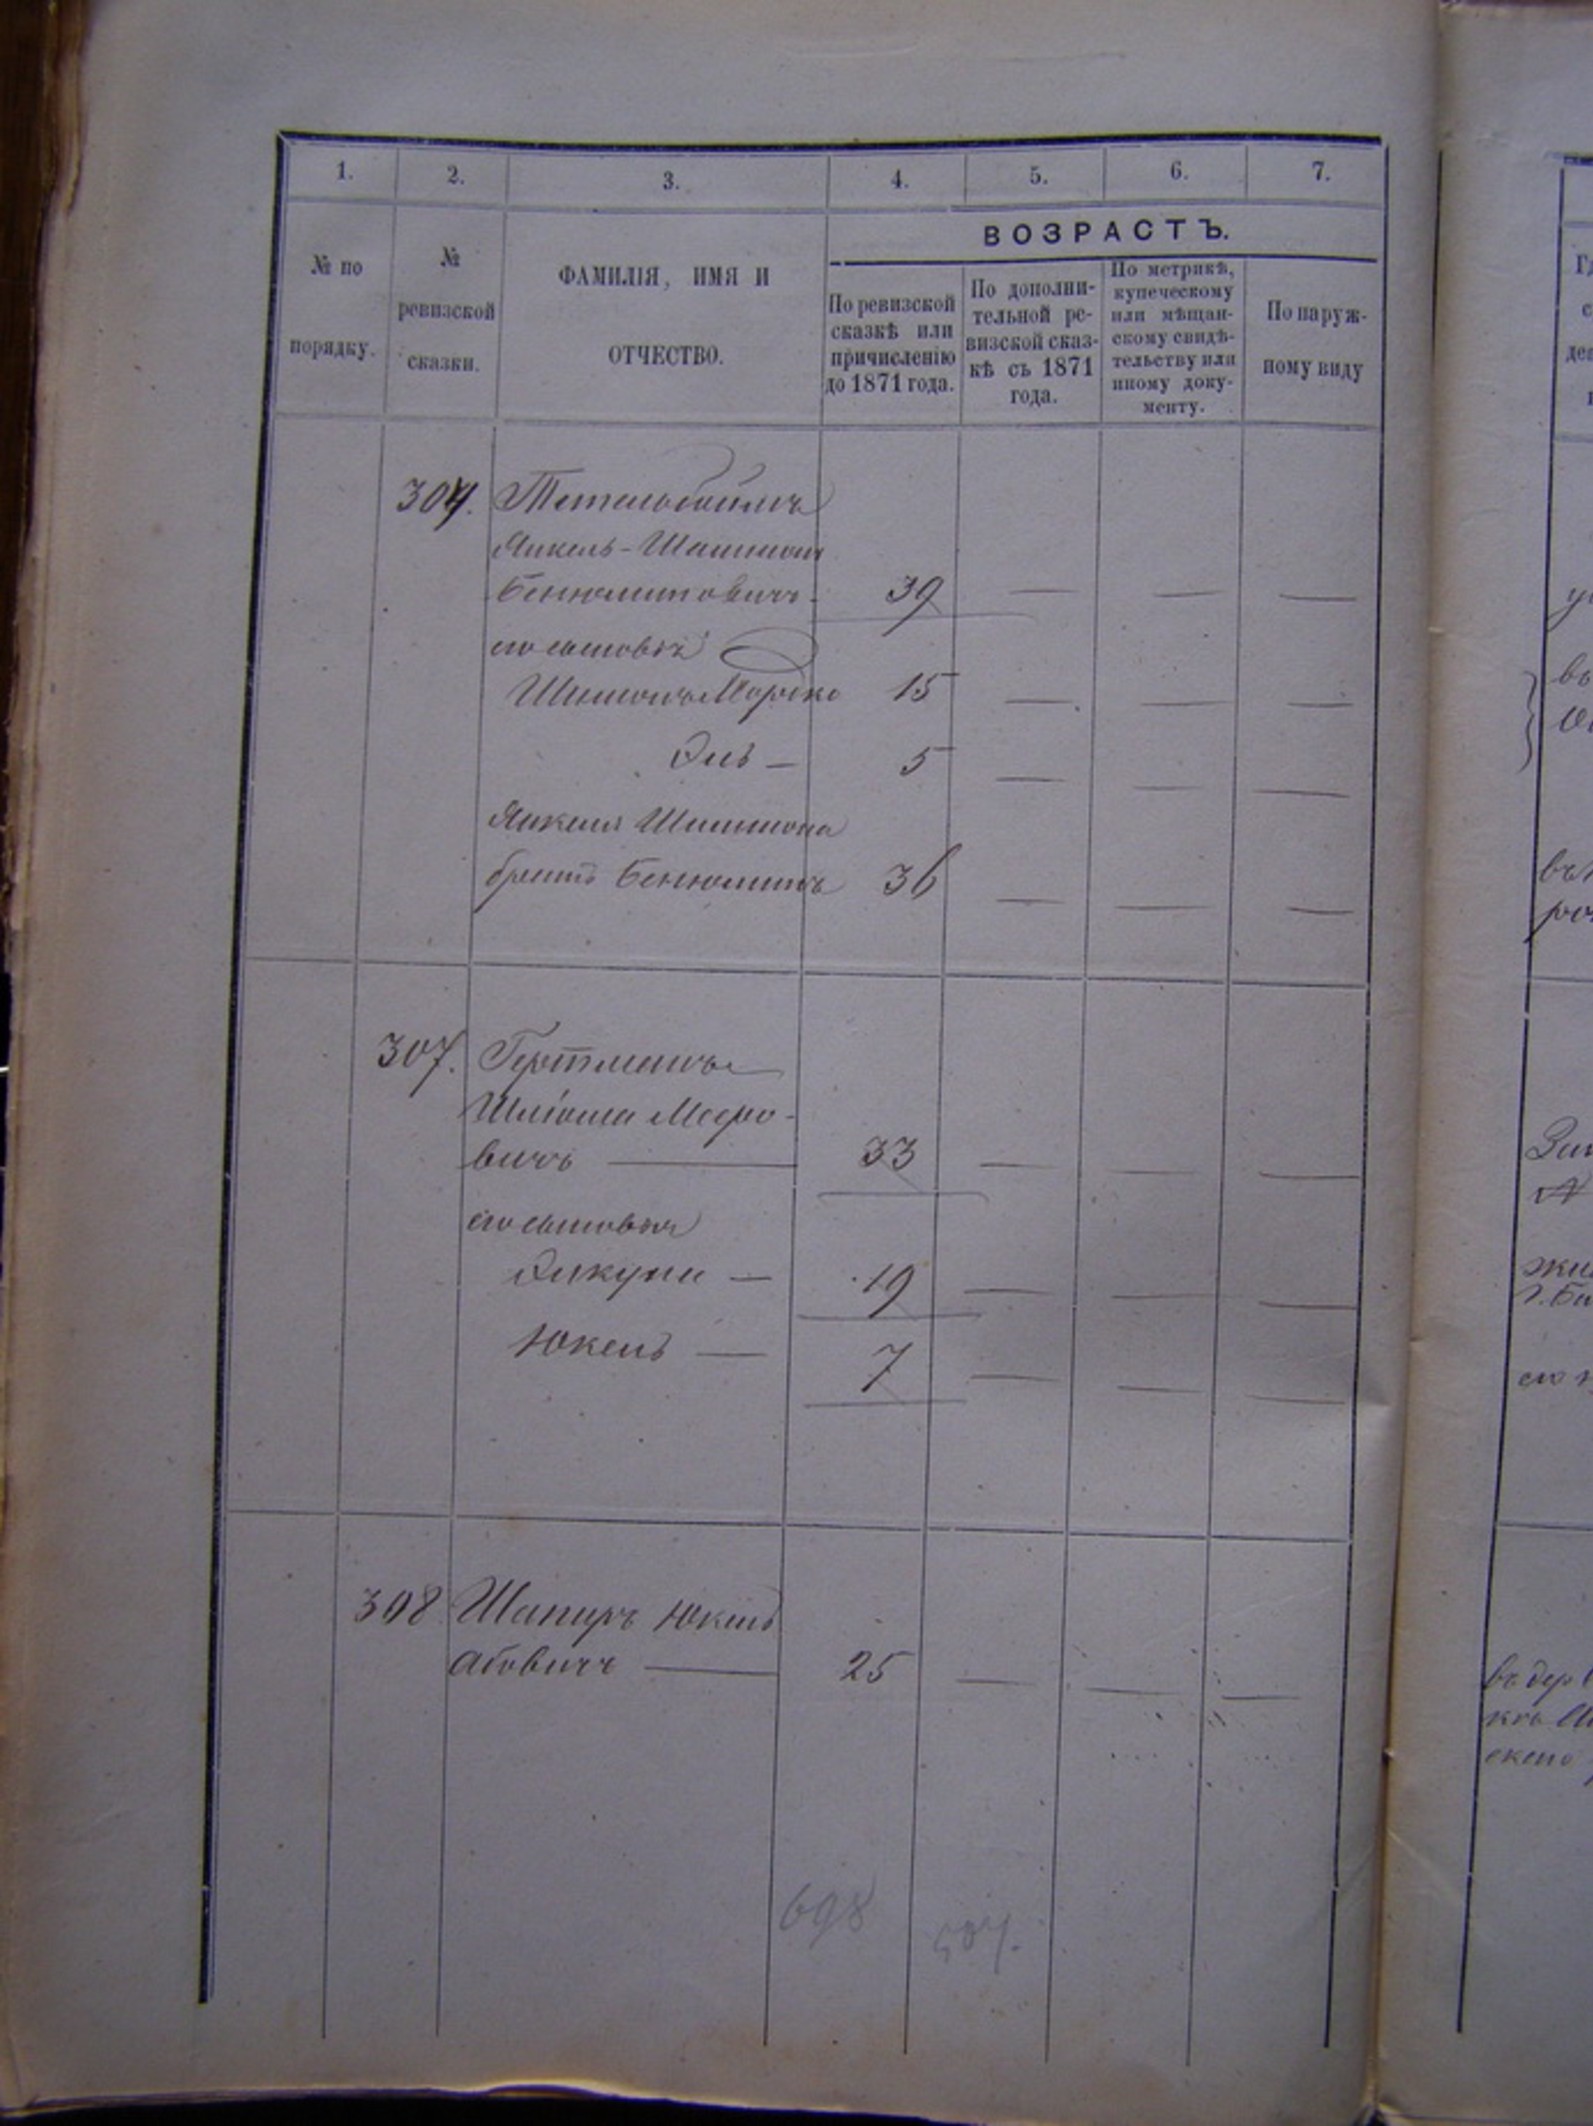 1. 2. 3. 4. 5. 6. 7.
№ по порядку.
№ ревизской сказки.
ФАМИЛІЯ, ИМЯ И ОТЧЕСТВО.
ВОЗРАСТЪ.
По ревизской сказкѣ или причисленію до 1871 года.
По дополни-тельной ре-визской сказ-кѣ съ 1871 года.
По метрикѣ, купеческому или мѣщан-скому свидѣ-тельству или иному доку-менту.
По наруж-ному виду
304. Тетельбаймъ
Янкель-Шимшон
Бенюминовичъ 39 — — —
его сыновья
Шимонъ Мордко 15 — — —
Эль — 5 — — —
Янкеля Шимшона
братъ Бенюминъ 36 — — —
307. Гертманъ
Шлiома Мееро-
вичъ — 33 — — —
его сыновья
Элкуна — 19 — — —
Юкель — 7 — — —
308 Шапиръ Юкель
Абовичъ — 25 — — —
698 507.